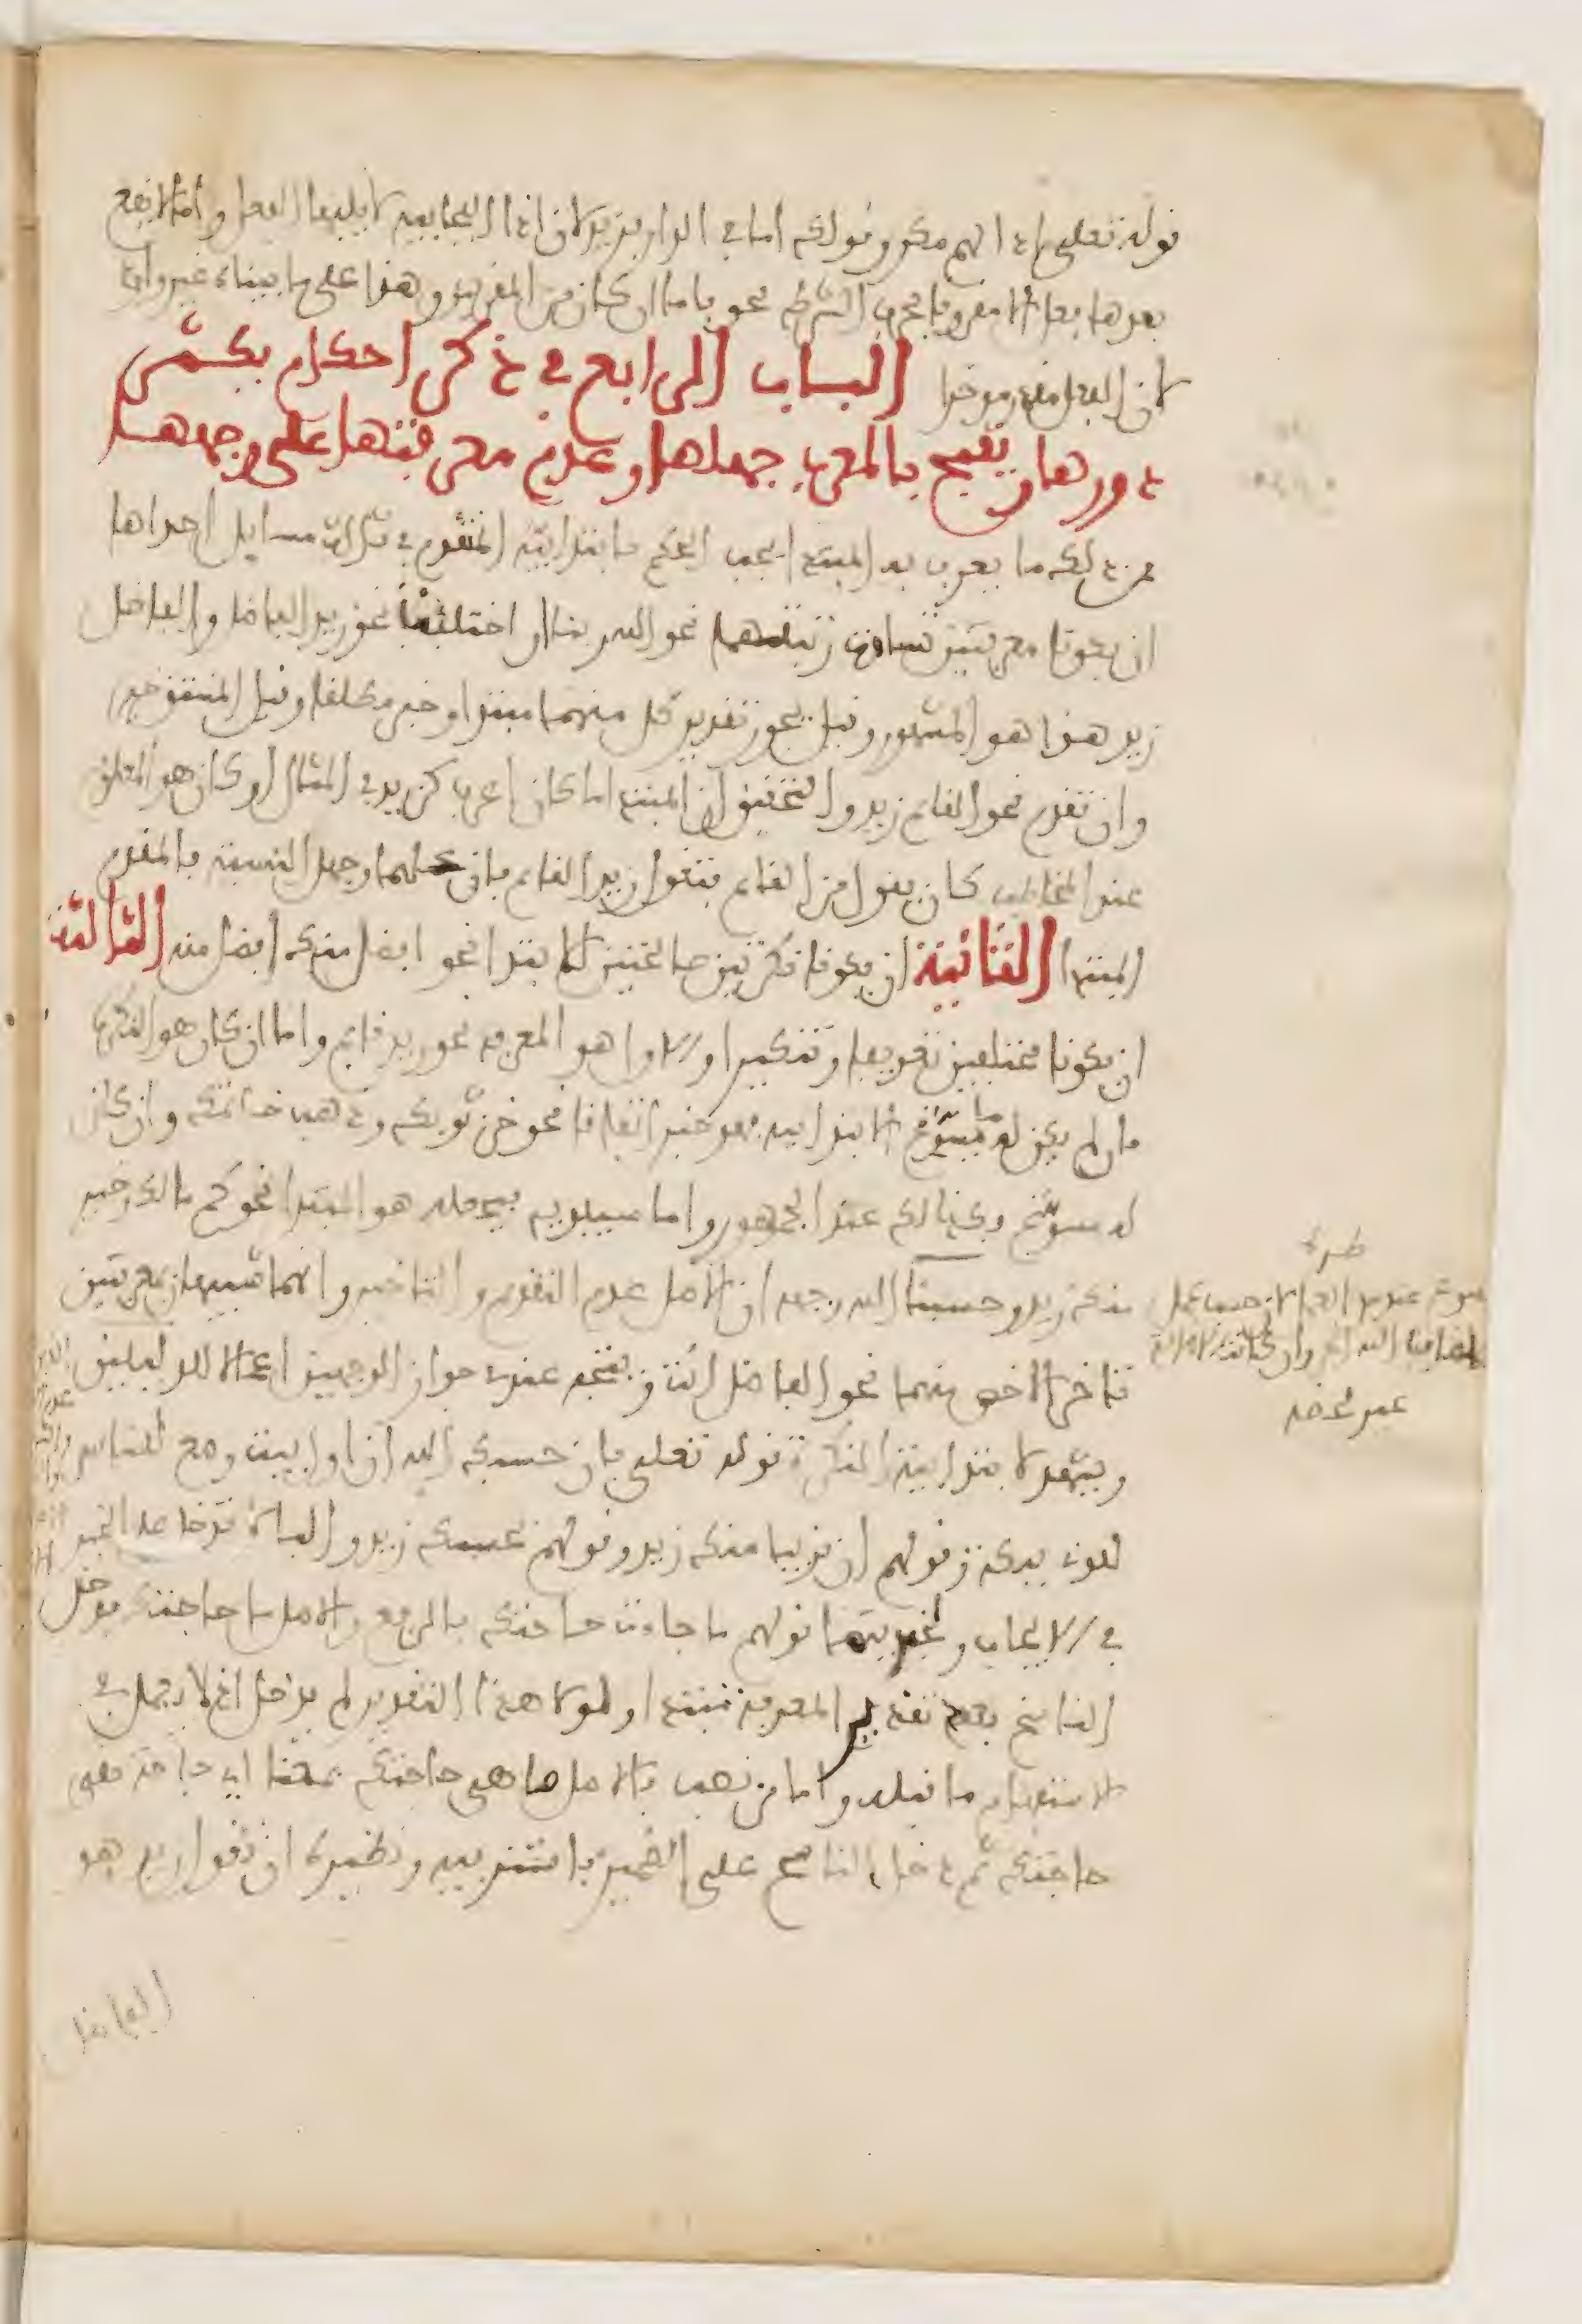 قوله تعلى إذا لهم مكر وقولك أما في الدار فزيد لأن إذا الفجائية لا يليها الفعل وأما لا يقع
بعدها فعل إلا مقرونا بحرف الشرط نحو فأما إن كان من المقربين وهذا على ما بيناه غير وارد
لأن الفعل مقدر موخرا الباب الرابع في ذكر أحكام يكثر
دورها ويقبح بالمعرب جهلها وعدم معرفتها على وجهها
فمن ذلك ما يعرف به المبتدا يجب الحكم بابتدائية المتقدم في ثلاث مسايل احداها
ان يكونا معرفتين تساوت رتبتهما نحو الله ربنا او اختلفت نحو زيد الفاضل والفاضل
زيد هذا هو المشهور وقيل يجوز تقدير كل منهما مبتدا وخبرا مطلقا وقيل المشتق خبر
وان تقدم نحو القايم زيد والتحقيق ان المبتدا ما كان اعرف كزيد في المثال او كان هو المعلوم
عند المخاطب كان يقول من القايم فتقول زيد القايم فان علمهما وجهل النسبة فالمقدم
المبتدا الثانية ان يكونا نكرتين صالحتين للابتدا نحو افضل منك افضل منه الثالثة
ان يكونا مختلفين تعريفا وتنكيرا والاول هو المعرفة نحو زيد قايم واما ان كان هو النكرة
فان لم يكن له ما يسوغ الابتدا به فهو خبر اتفاقا نحو خز ثوبك وذهب خاتمك وان كان
له مسوغ فكذلك عند الجمهور واما سيبويه فيجعله هو المبتدا نحو كم مالك وخير
منك زيد وحسبنا الله وجهه ان الاصل عدم التقديم والتاخير وانهما شبيهان بمعرفتين
تاخر الاخص منهما نحو الفاضل انت ويتجه عنده جواز الوجهين اعمالا للدليلين
ويشهد لابتدائية النكرة قوله تعلى فان حسبك الله ان اول بيت وضع للناس
للذي ببكة وقولهم ان قريبا منك زيد وقولهم بحسبك زيد والباء لا تدخل على الخبر
في الايجاب ولخبريتها قولهم ما جاءت حاجتك بالرفع والاصل ما حاجتك فدخل
الناسخ بعد تقدير المعرفة مبتدا ولولا هذا التقدير لم يدخل اذ لا يعمل في
الاستفهام ما قبله واما من نصب فالاصل ما هي حاجتك بمعنى اي حاجة هي
حاجتك ثم دخل الناسخ على الضمير فاستتر فيه ونظيره ان تقول زيد هو
الفاضل
طرة